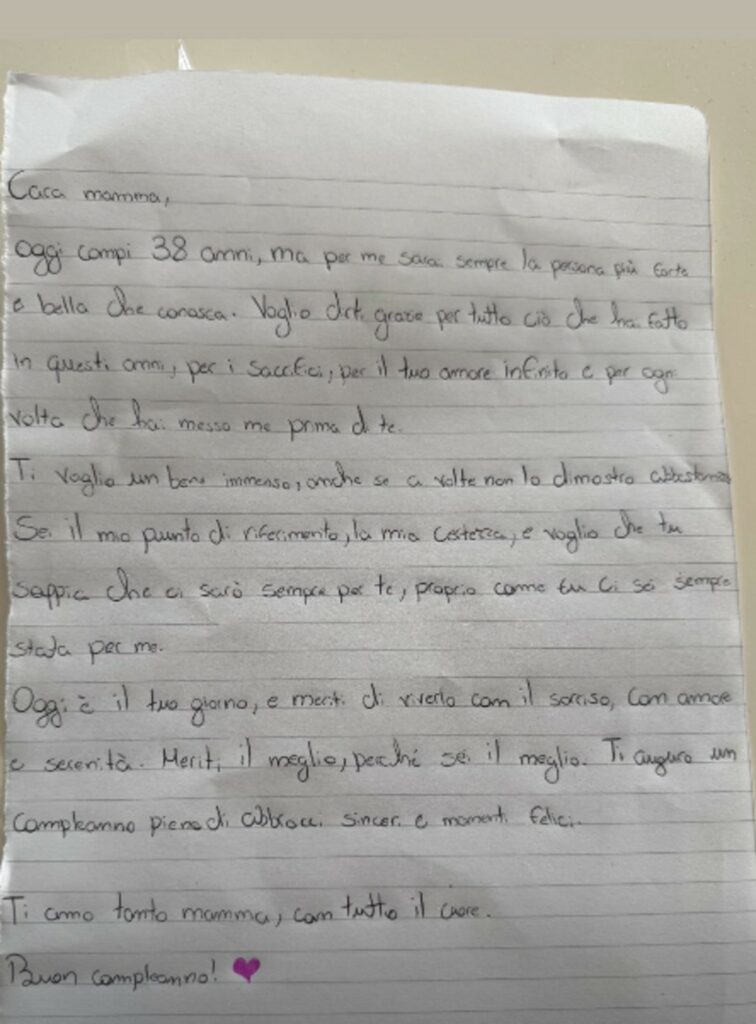 Cara mamma,
oggi compi 38 anni, ma per me sarai sempre la persona più forte
e bella che conosca. Voglio dirti grazie per tutto ciò che hai fatto
in questi anni, per i sacrifici, per il tuo amore infinito e per ogni
volta che hai messo me prima di te.
Ti voglio un bene immenso, anche se a volte non lo dimostro abbastanza
Sei il mio punto di riferimento, la mia certezza, e voglio che tu
sappia che ci sarò sempre per te, proprio come tu ci sei sempre
stata per me.
Oggi è il tuo giorno, e meriti di viverlo con il sorriso, con amore
e serenità. Meriti il meglio, perché sei il meglio. Ti auguro un
compleanno pieno di abbracci sinceri e momenti felici.
Ti amo tanto mamma, con tutto il cuore.
Buon compleanno! ♥